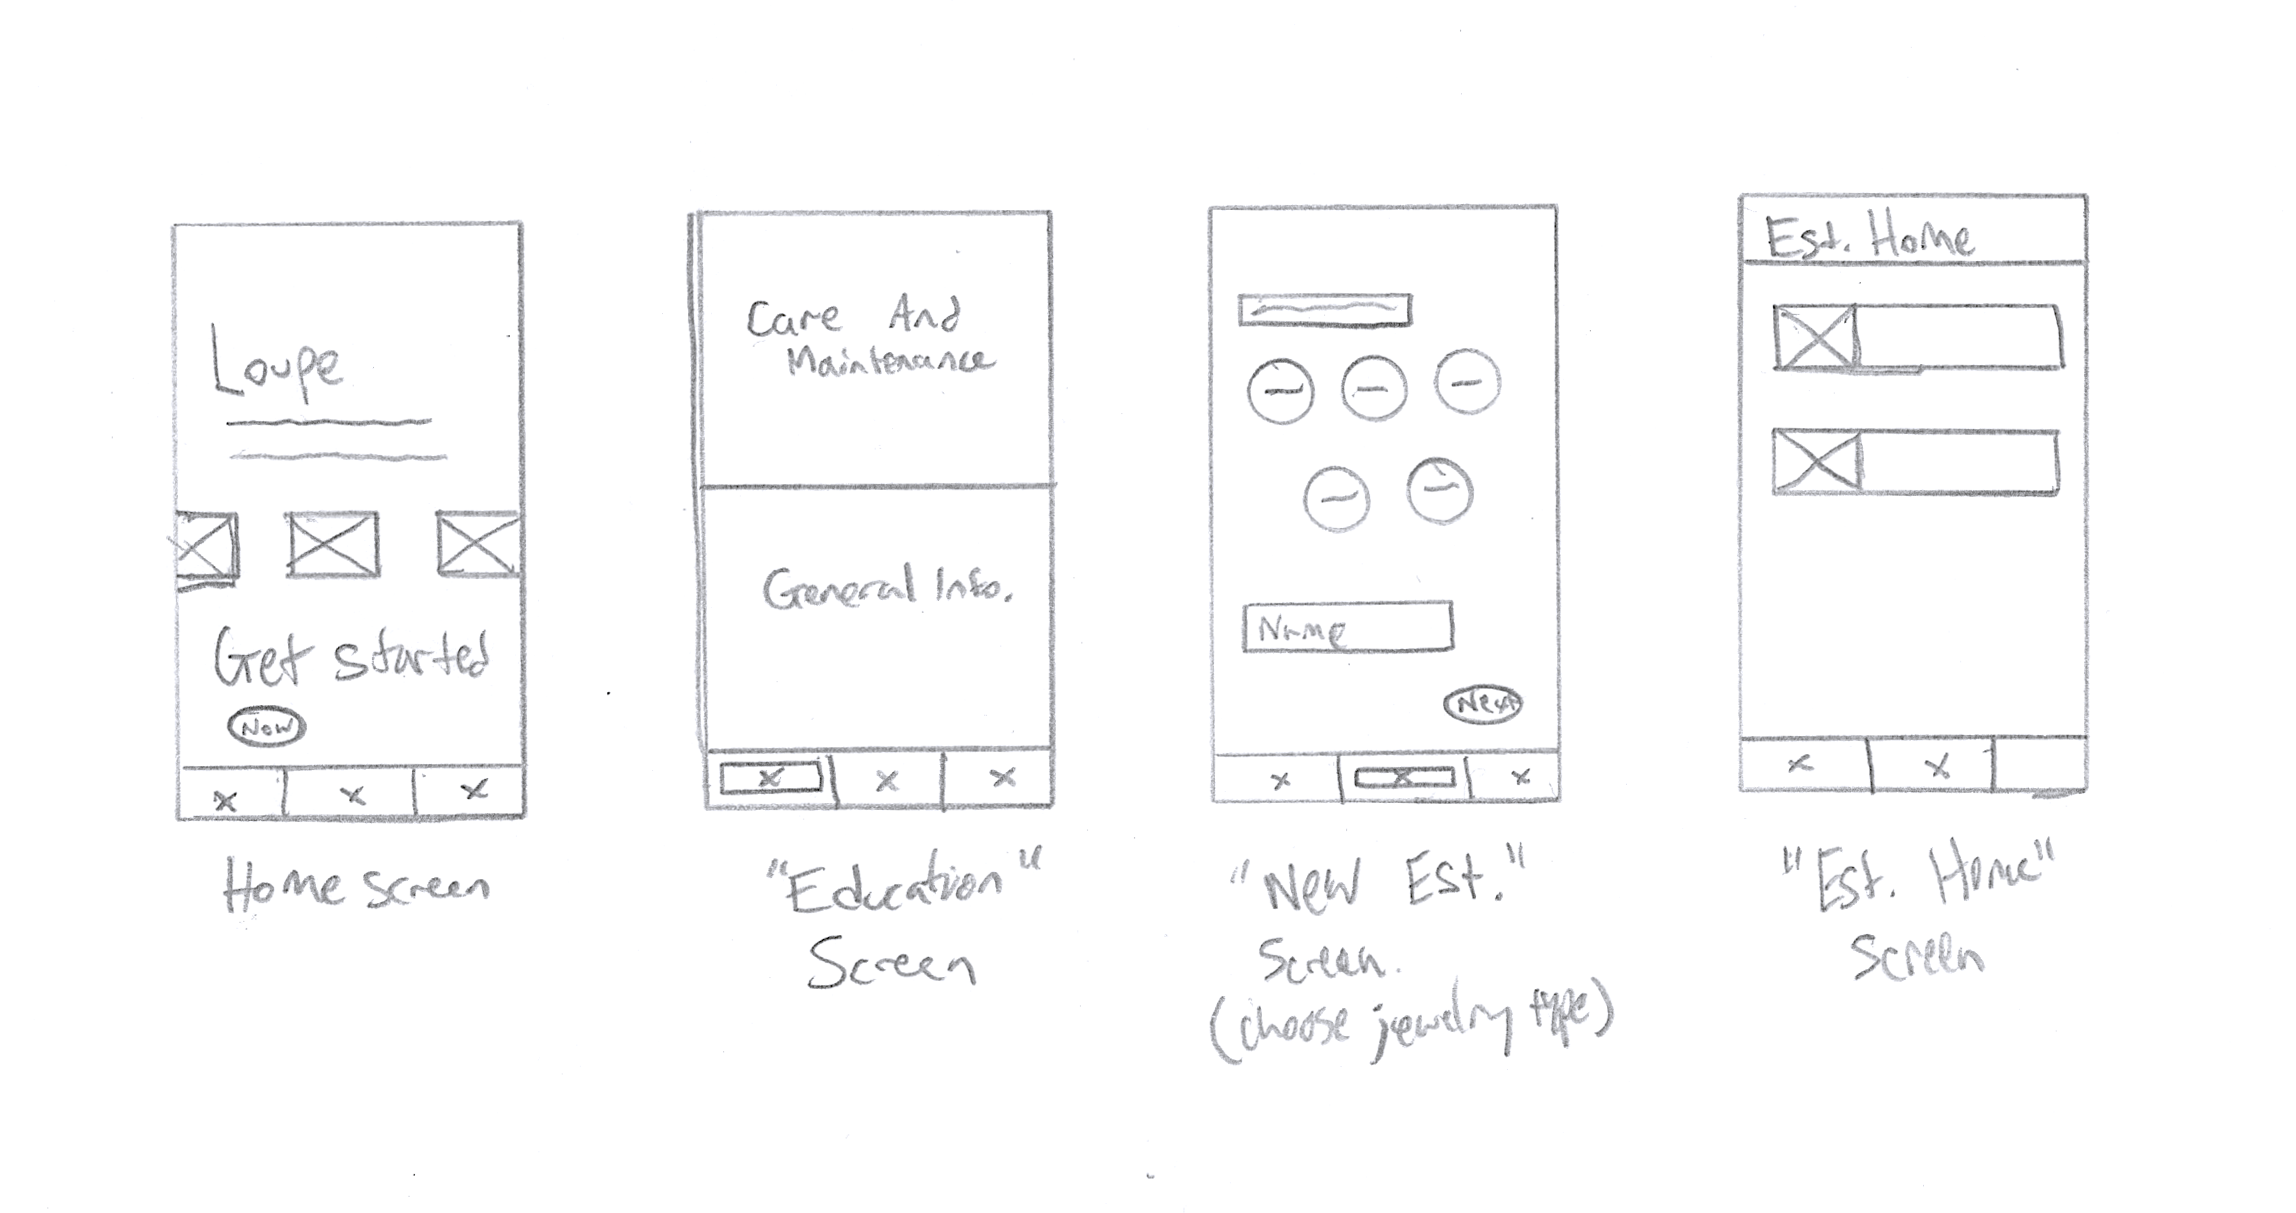 Loupe
Get started
Now
Home screen
Care And
Maintenance
General Info.
"Education"
Screen
Name
Next
"New Est."
Screen.
(choose jewelry type)
Est. Home
"Est. Home"
Screen